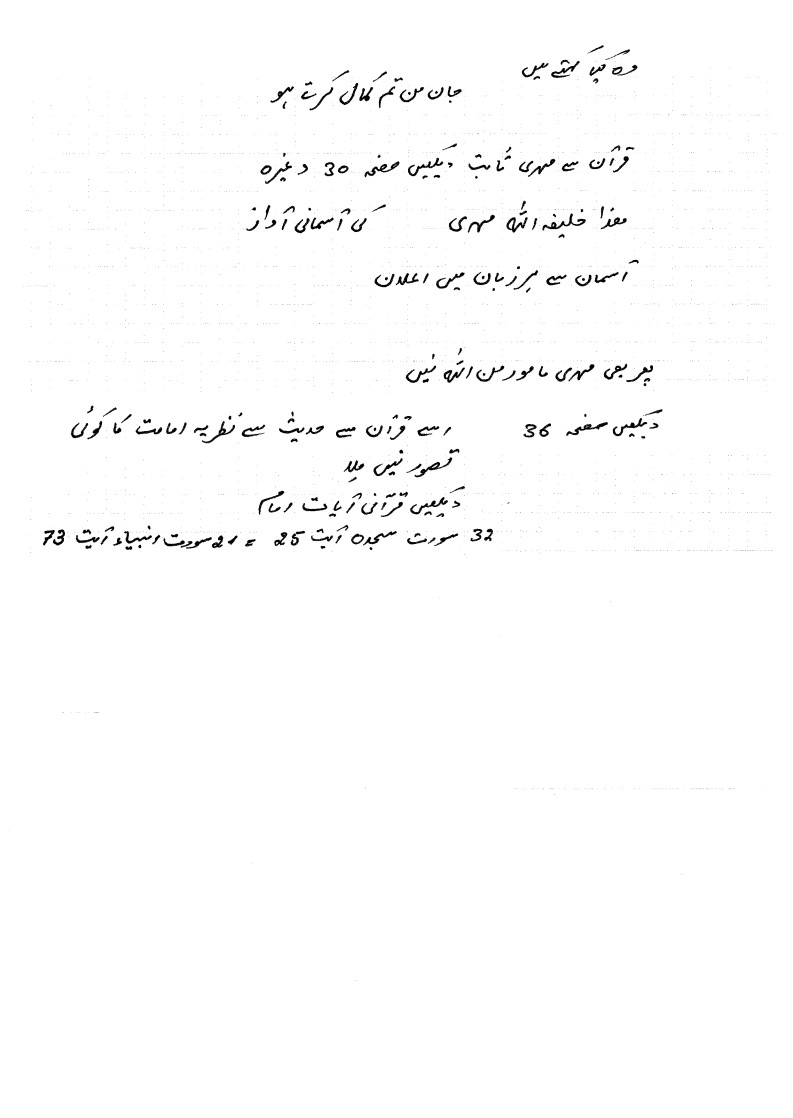 وہ کیا کہتے ہیں
جان من تم کمال کرتے ہو
قرآن سے مہدی ثابت دیکھیں صفحہ 30 وغیرہ
ھذا خلیفہ اللہ مہدی کی آسمانی آواز
آسمان سے ہر زبان میں اعلان
پھر بھی مہدی مامور من اللہ نہیں
دیکھیں صفحہ 36 اسے قرآن سے حدیث سے نظریہ امامت کا کوئی
تصور نہیں ملا
دیکھیں قرآنی آیات امام
32 سورت سجدہ آیت 25 = 21 سورت انبیاء آیت 73